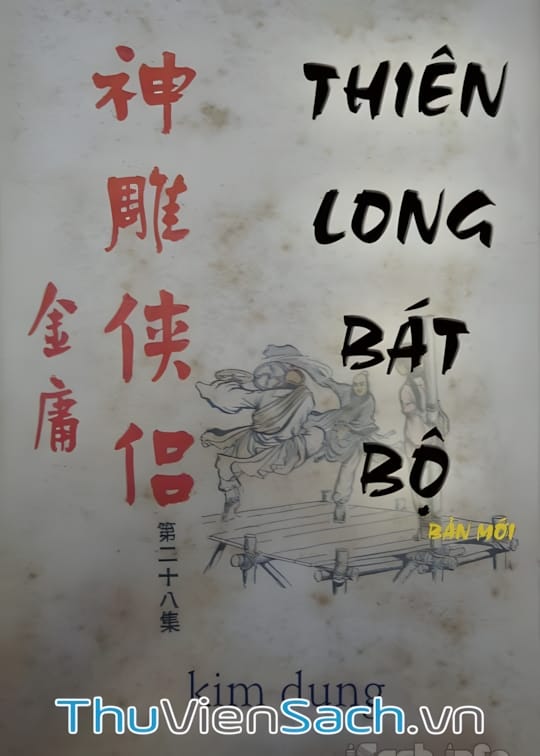 神雕侠侣
金庸
第二十八集
THIÊN
LONG
BÁT
BỘ
BẢN MỚI
kim dung
ThuVienSach.vn